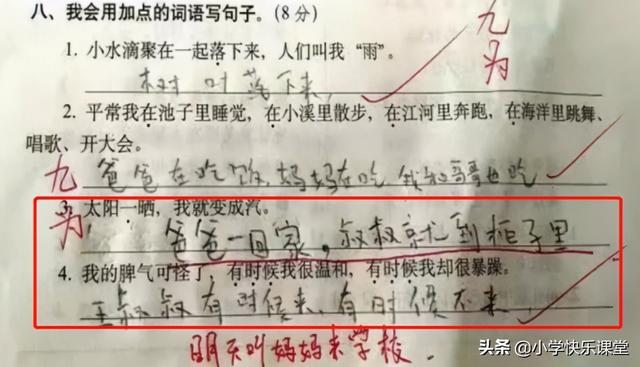 八、我会用加点的词语写句子。(8分)
1. 小水滴聚在一起落下来，人们叫我“雨”。
树叶落下来，
2. 平常我在池子里睡觉，在小溪里散步，在江河里奔跑，在海洋里跳舞、
唱歌、开大会。
爸爸在吃饭，妈妈在吃 我和哥哥也吃
3. 太阳一晒，我就变成汽。
爸爸一回家，叔叔就到柜子里
4. 我的脾气可怪了，有时候我很温和，有时候我却很暴躁。
王叔叔有时候来、有时候不来
明天叫妈妈来学校.
头条 @小学快乐课堂